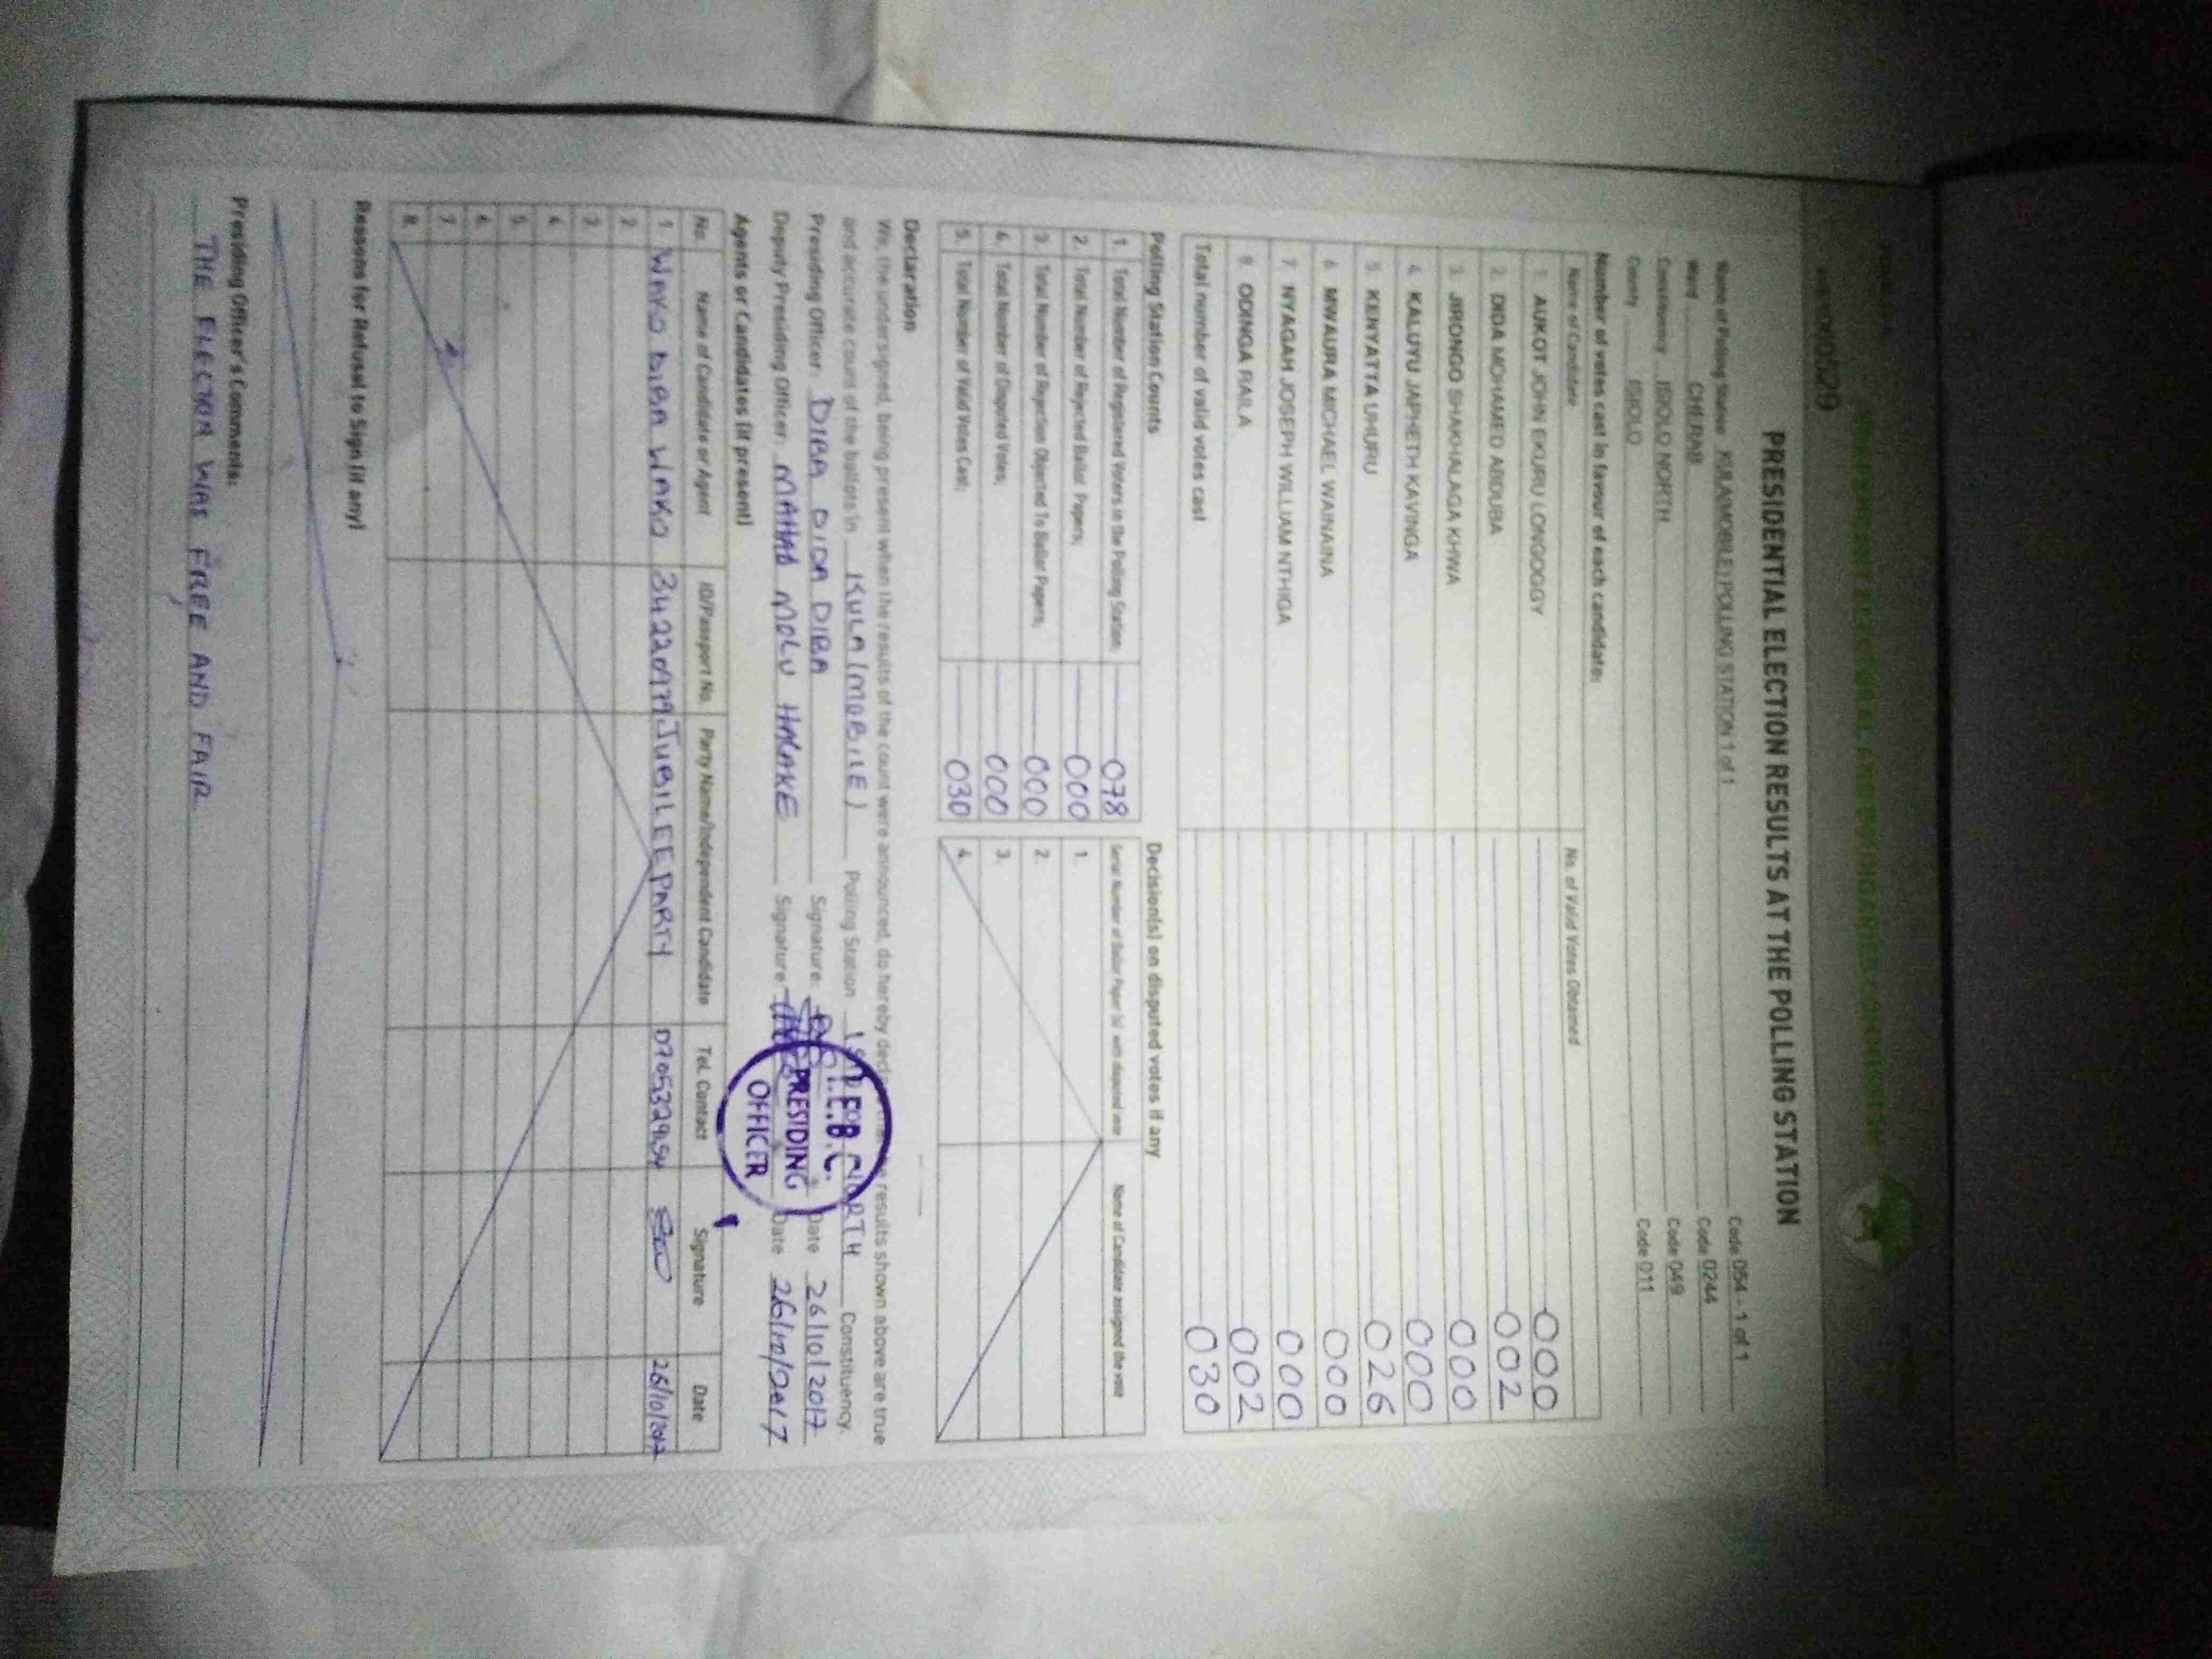 INDEPENDENT ELECTORAL AND BOUNDARIES COMMISSION
PRESIDENTIAL ELECTION RESULTS AT THE POLLING STATION
Name of Polling Station KULA(MOBILE) POLLING STATION 1 of 1 Code 054 - 1 of 1
Ward CHERAB Code 0244
Constituency ISIOLO NORTH Code 049
County ISIOLO Code 011
Number of votes cast in favour of each candidate:
Name of Candidate No. of Valid Votes Obtained
1. AUKOT JOHN EKURU LONGOGGY 000
2. DIDA MOHAMED ABDUBA 002
3. JIRONGO SHAKHALAGA KHWA 000
4. KALUYU JAPHETH KAVINGA 000
5. KENYATTA UHURU 026
6. MWAURA MICHAEL WAINAINA 000
7. NYAGAH JOSEPH WILLIAM NTHIGA 000
8. ODINGA RAILA 002
Total number of valid votes cast 030
Polling Station Counts
1. Total Number of Registered Voters in the Polling Station; 078
2. Total Number of Rejected Ballot Papers; 000
3. Total Number of Rejection Objected To Ballot Papers; 000
4. Total Number of Disputed Votes; 000
5. Total Number of Valid Votes Cast; 030
Decision(s) on disputed votes if any
Serial Number of Ballot Paper (s) with disputed vote Name of Candidate assigned the vote
1.
2.
3.
4.
Declaration
We, the undersigned, being present when the results of the count were announced, do hereby declare results shown above are true
and accurate count of the ballots in KULA (MOBILE) Polling Station NORTH Constituency.
Presiding Officer: DIBA DIDA DIBA Signature: Date 26/10/2017
Deputy Presiding Officer: MAHAD MOLU HALAKE Signature Date 26/10/2017
I.E.B.C.
PRESIDING
OFFICER
Agents or Candidates (if present)
No. Name of Candidate or Agent ID/Passport No. Party Name/Independent Candidate Tel. Contact Signature Date
1 WAKO DIBA WAKO JUBILEE PARTY 26/10/2017
2
3
4
5
6
7
8
Reasons for Refusal to Sign (if any)
Presiding Officer's Comments:
THE ELECTION WAS FREE AND FAIR